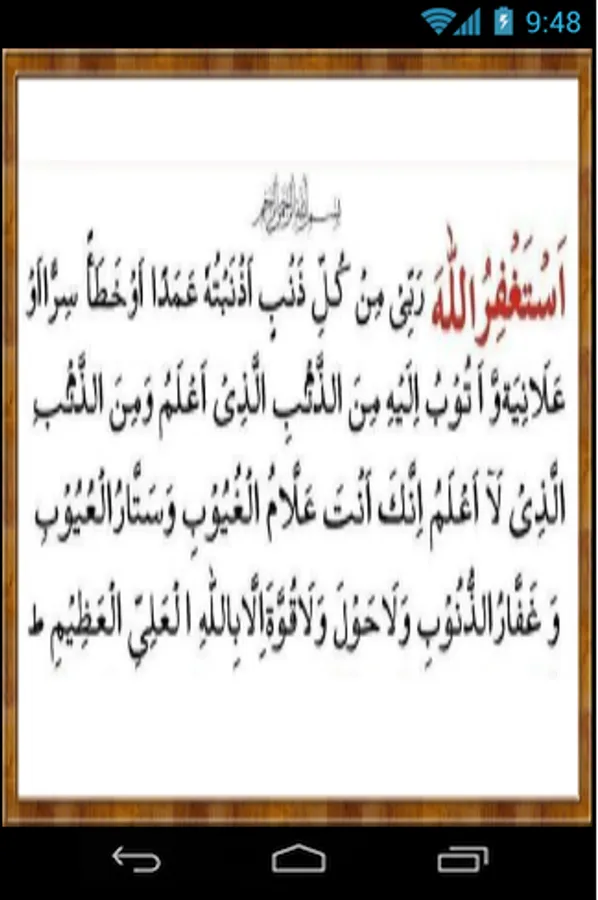 9:48
بسم الله الرحمن الرحيم
اَسْتَغْفِرُ اللهَ رَبِّىْ مِنْ كُلِّ ذَنْبٍ اَذْنَبْتُهٗ عَمَدًا اَوْ خَطَأً سِرًّا اَوْ
عَلَانِيَةً وَّ اَتُوْبُ اِلَيْهِ مِنَ الذَّنْبِ الَّذِىْ اَعْلَمُ وَمِنَ الذَّنْبِ
الَّذِىْ لَآ اَعْلَمُ اِنَّكَ اَنْتَ عَلَّامُ الْغُيُوْبِ وَسَتَّارُ الْعُيُوْبِ
وَ غَفَّارُ الذُّنُوْبِ وَلَا حَوْلَ وَلَا قُوَّةَ اِلَّا بِاللهِ الْعَلِىِّ الْعَظِيْمِ ط